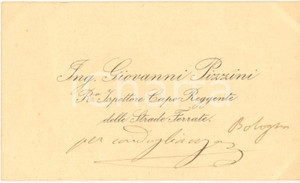 Ing. Giovanni Pizzini
R.º Ispettore Capo Reggente
delle Strade Ferrate
Bologna
per condoglianze